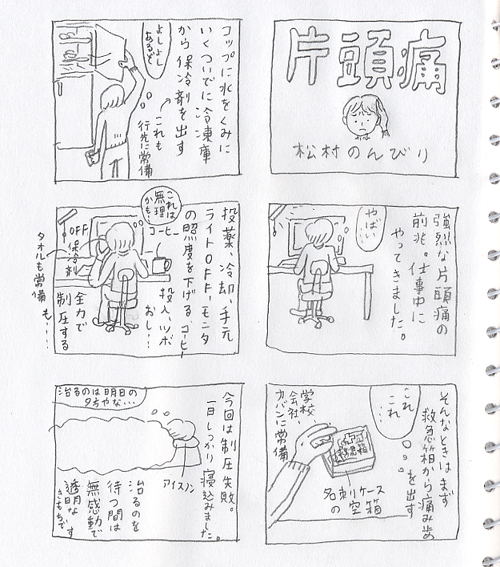 片頭痛
松村のんびり
強烈な片頭痛の
前兆。仕事中に
やってきました。
やばい
そんなときはまず
救急箱から痛み止め
を出す
これ
これ
学校、
会社、
カバンに常備
救急箱
名刺ケース
の空箱
コップに水をくみに
いくついでに冷凍庫
から保冷剤を出す
これも
行先に常備
よしよし
あるぞ
投薬、冷却、手元
ライトOFF、モニタ
の照度を下げる、コーヒー
投入、ツボ
おし…
全力で
制圧する
これは
無理
かも…
コーヒー
OFF
保冷剤
タオルも常備
も…
今回は制圧失敗。
一日しっかり寝込みました。
治るのは明日の
夕方やな…
アイスノン
治るのを
待つ間は
無感動で
透明な
きもちです